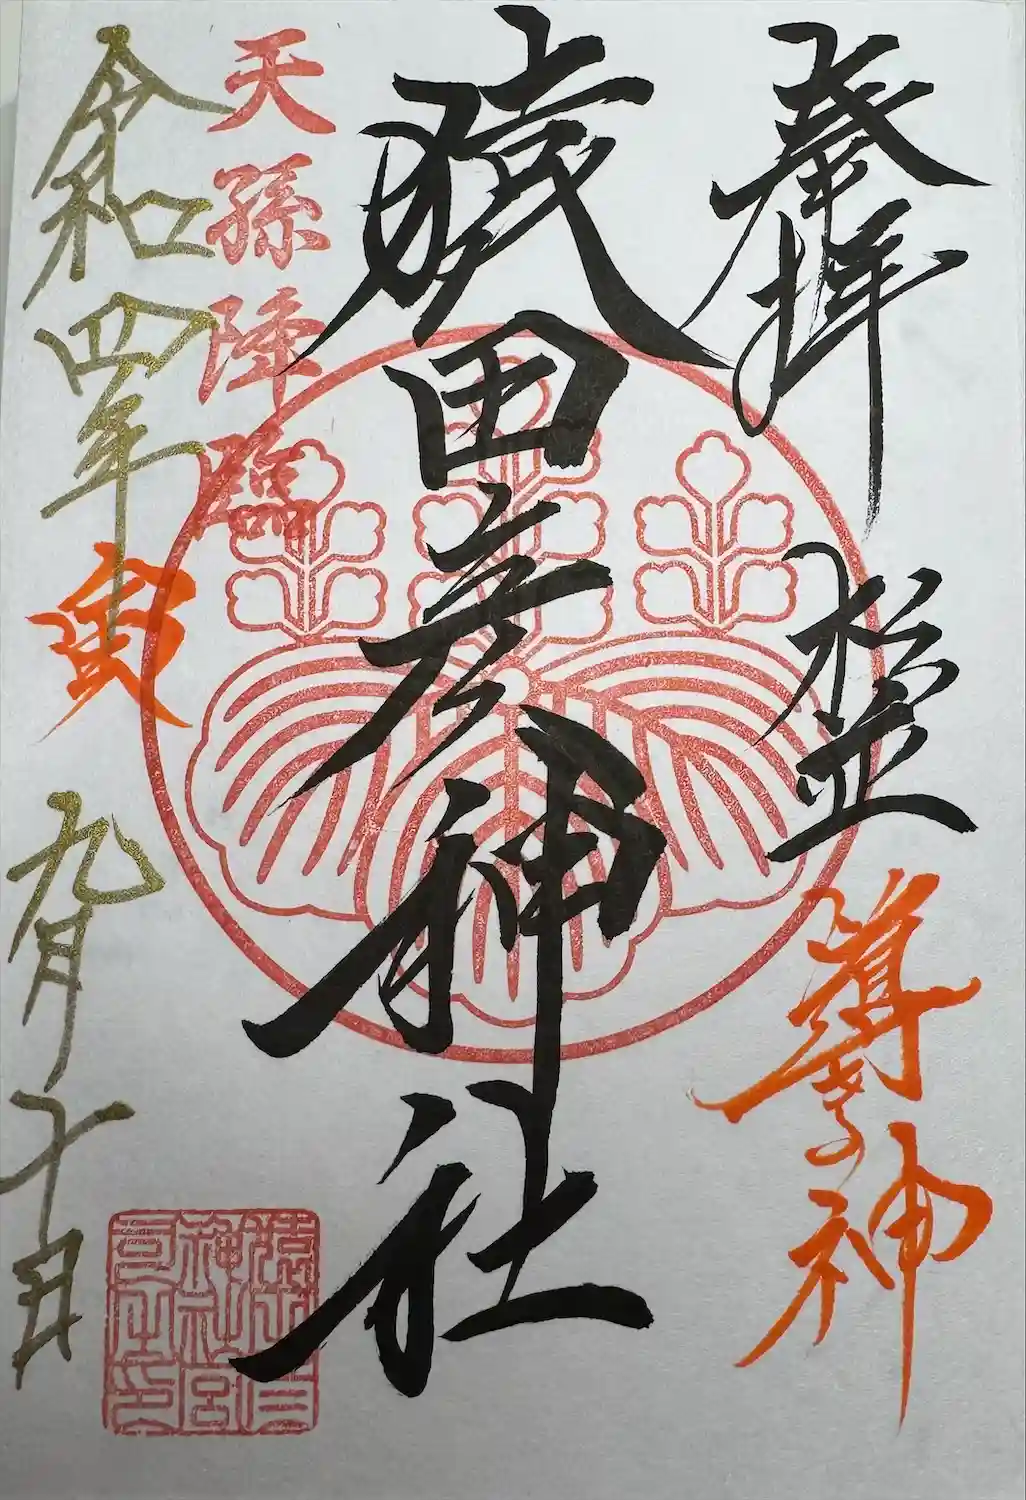 奉拝
導き神
猿田彦神社
天孫降臨
令和四年 寅 九月十日
猿田彦
神社宮
司之印